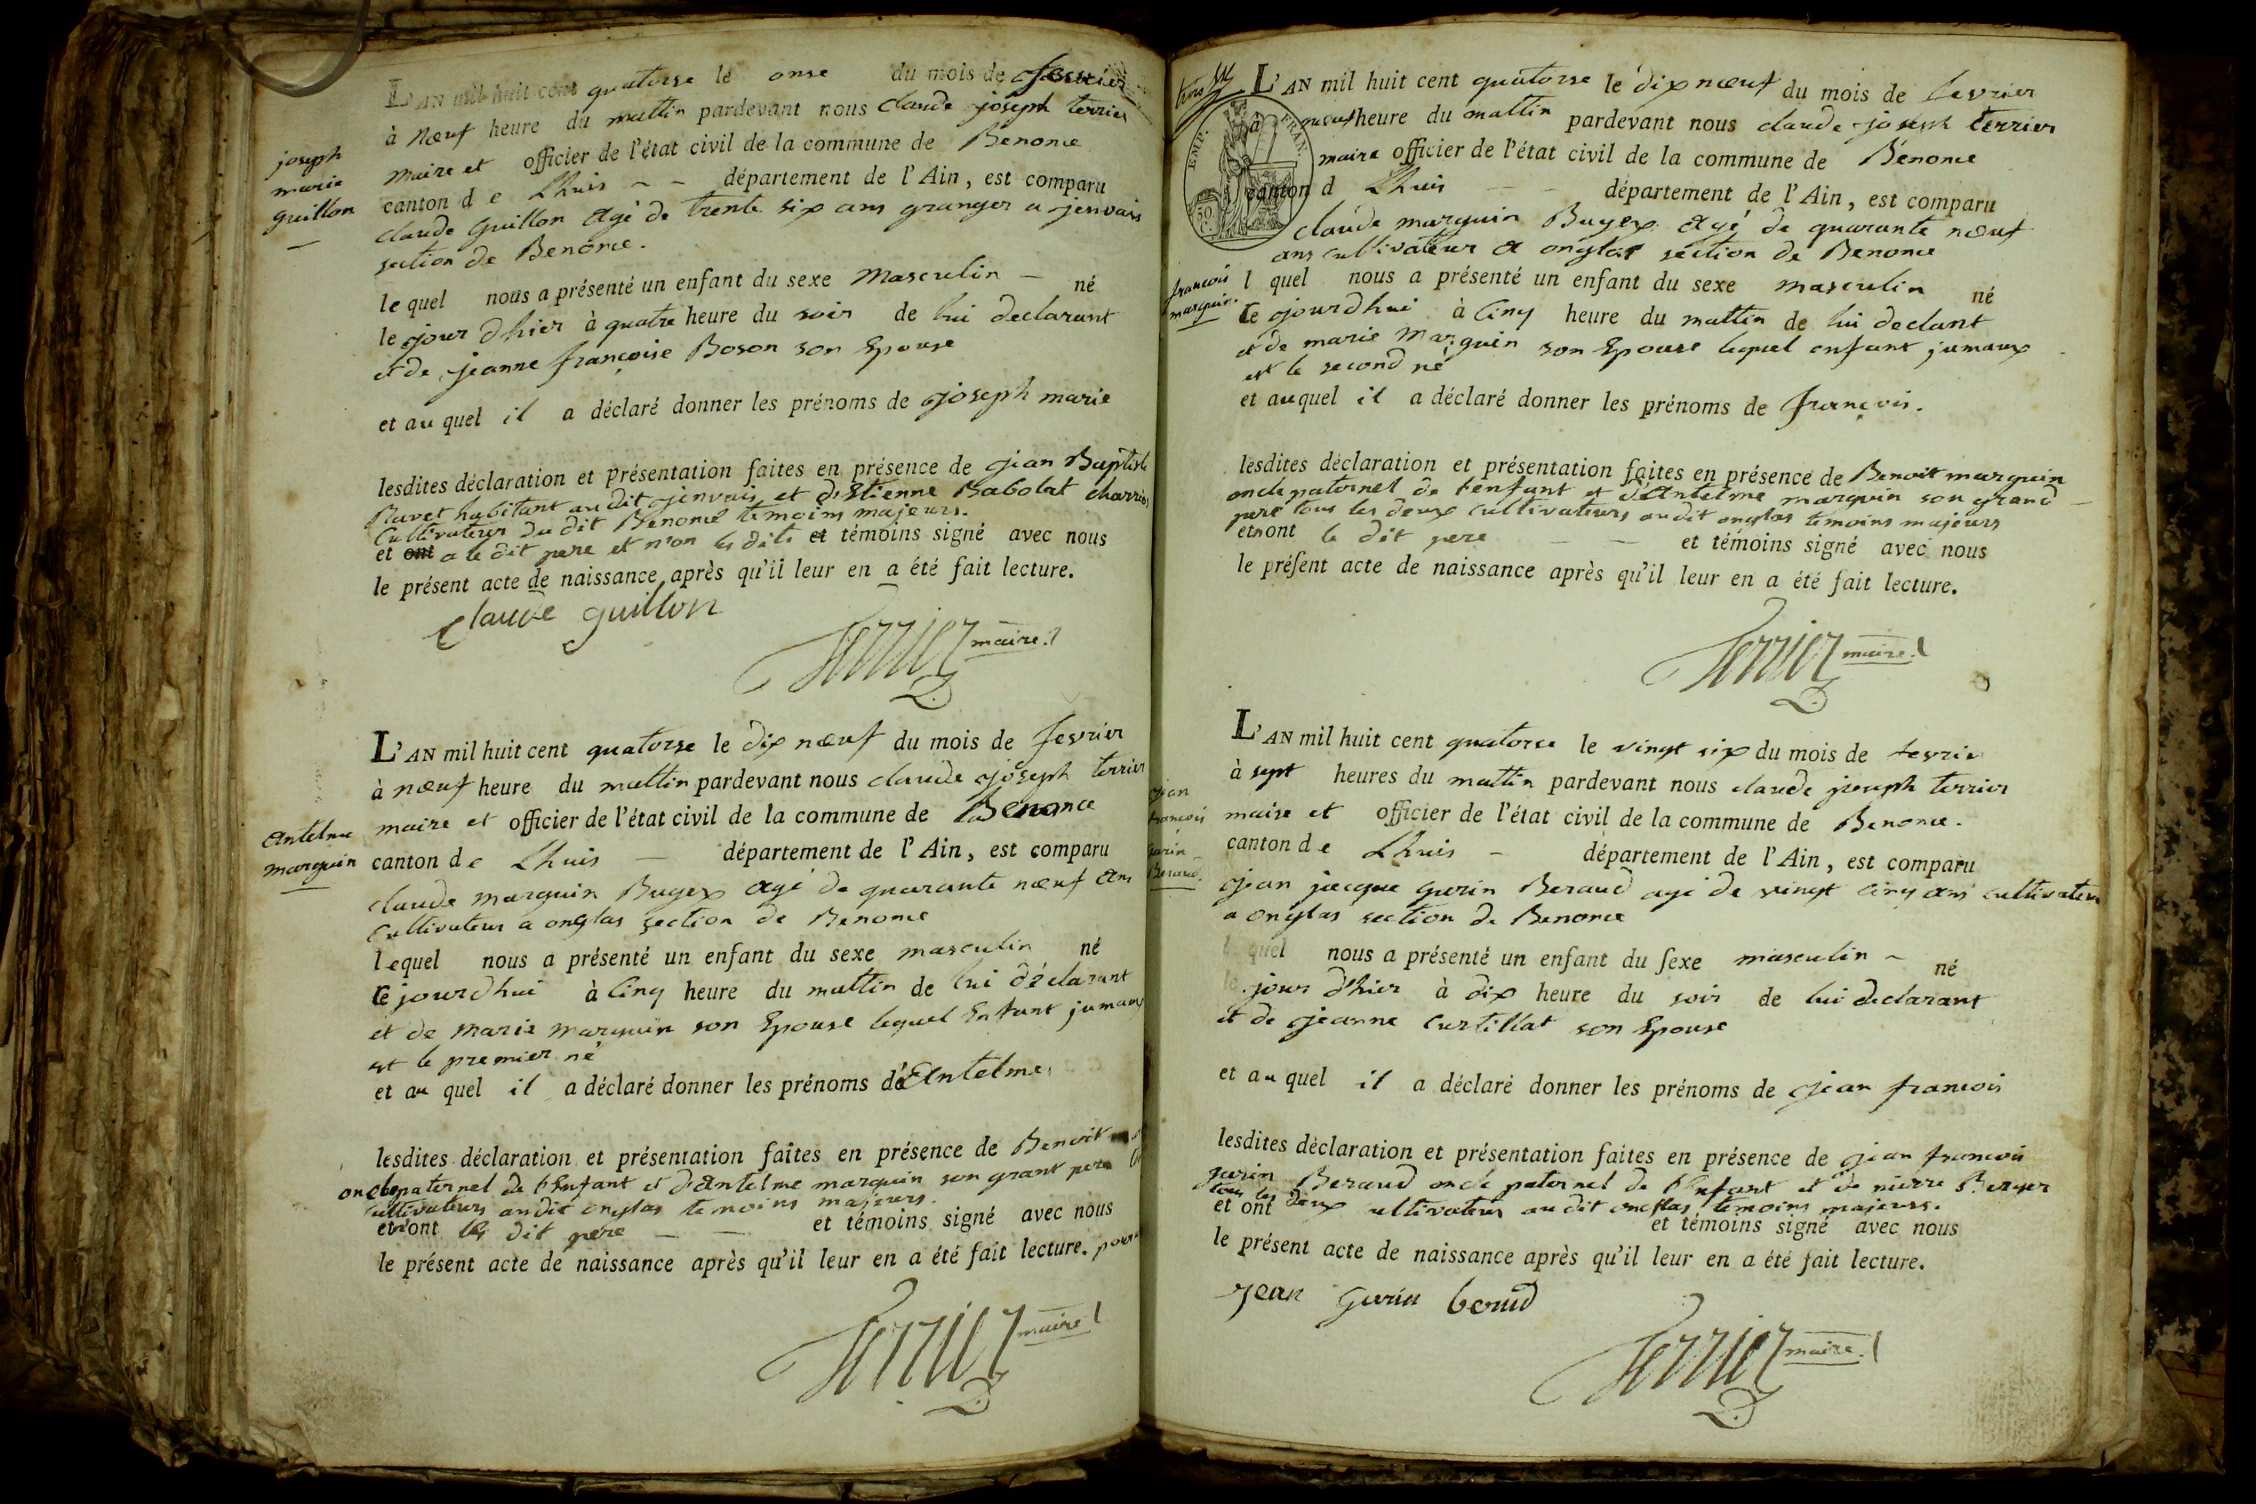 L'AN mil huit cent quatorse le onse du mois de fevrier
à nœuf heure du mattin pardevant nous claude joseph terrier
maire et officier de l'état civil de la commune de Benonce
canton de Lhuis - - département de l'Ain, est comparu
joseph
marie
guillon
claude Guillon agé de trente six ans granger a jenvais
section de Benonce.
lequel nous a présenté un enfant du sexe Masculin - né
le jour d'hier à quatre heure du soir de lui declarant
et de jeanne françoise Boson son Epouse
et au quel il a déclaré donner les prénoms de joseph marie
lesdites déclaration et présentation faites en présence de jean Baptiste
Ravet habitant au dit jenvais et d'Etienne Babolat charrier
Cultivateur du dit Benonce temoins majeurs.
et ont a le dit pere et n'on les dits et témoins signé avec nous
le présent acte de naissance après qu'il leur en a été fait lecture.
Claude guillon
Terrier maire
L'AN mil huit cent quatorse le dix nœuf du mois de fevrier
à nœuf heure du mattin pardevant nous claude joseph terrier
maire et officier de l'état civil de la commune de Benonce
antelme
marquin
canton de Lhuis - département de l'Ain, est comparu
claude marquin Bugex agé de quarante nœuf ans
Cultivateur a onglas section de Benonce
lequel nous a présenté un enfant du sexe masculin né
ce jourdhui à Cinq heure du mattin de lui déclarant
et de marie marquin son Epouse lequel Enfant jumaux
est le premier né
et au quel il a déclaré donner les prénoms d'Antelme
lesdites déclaration et présentation faites en présence de Benoit
oncle paternel de l'Enfant et d'Antelme marquin son grant pere
cultivateurs au dit onglas temoins majeurs.
et n'ont les dit pere - - et témoins signé avec nous
le présent acte de naissance après qu'il leur en a été fait lecture.
Terrier maire
L'AN mil huit cent quatorse le dix nœuf du mois de fevrier
EMP. FRAN.
50 C.
à nœuf heure du mattin pardevant nous claude joseph terrier
maire officier de l'état civil de la commune de Benonce
canton d Lhuis - - département de l'Ain, est comparu
claude marquin Bugex agé de quarante nœuf
ans cultivateur a onglas section de Benonce
françois
marquin.
l quel nous a présenté un enfant du sexe masculin né
ce jourdhui à Cinq heure du mattin de lui declant
et de marie Marquin son Epouse lequel enfant jumaux
est le second né
et au quel il a déclaré donner les prénoms de françois.
lesdites déclaration et présentation faites en présence de Benoit marquin
oncle paternel de l'enfant et d'Antelme marquin son grand
pere tous les deux cultivateurs au dit onglas temoins majeurs
et n'ont le dit pere - - et témoins signé avec nous
le présent acte de naissance après qu'il leur en a été fait lecture.
Terrier maire
L'AN mil huit cent quatorse le vingt six du mois de fevrier
à sept heures du mattin pardevant nous claude joseph terrier
maire et officier de l'état civil de la commune de Benonce.
jean
francois
gurin
Beraud.
canton de Lhuis - département de l'Ain, est comparu
jean jacque gurin Beraud agé de vingt Cinq ans cultivateur
a onglas section de Benonce
lequel nous a présenté un enfant du sexe masculin - né
le jour d'hier à dix heure du soir de lui declarant
et de jeanne Curtillat son Epouse
et au quel il a déclaré donner les prénoms de jean francois
lesdites déclaration et présentation faites en présence de jean francois
gurin Beraud oncle paternel de l'Enfant et de pierre Berger
tous les deux cultivateur au dit onglas temoins majeurs.
et ont et témoins signé avec nous
le présent acte de naissance après qu'il leur en a été fait lecture.
jean Gurin beraud
Terrier maire